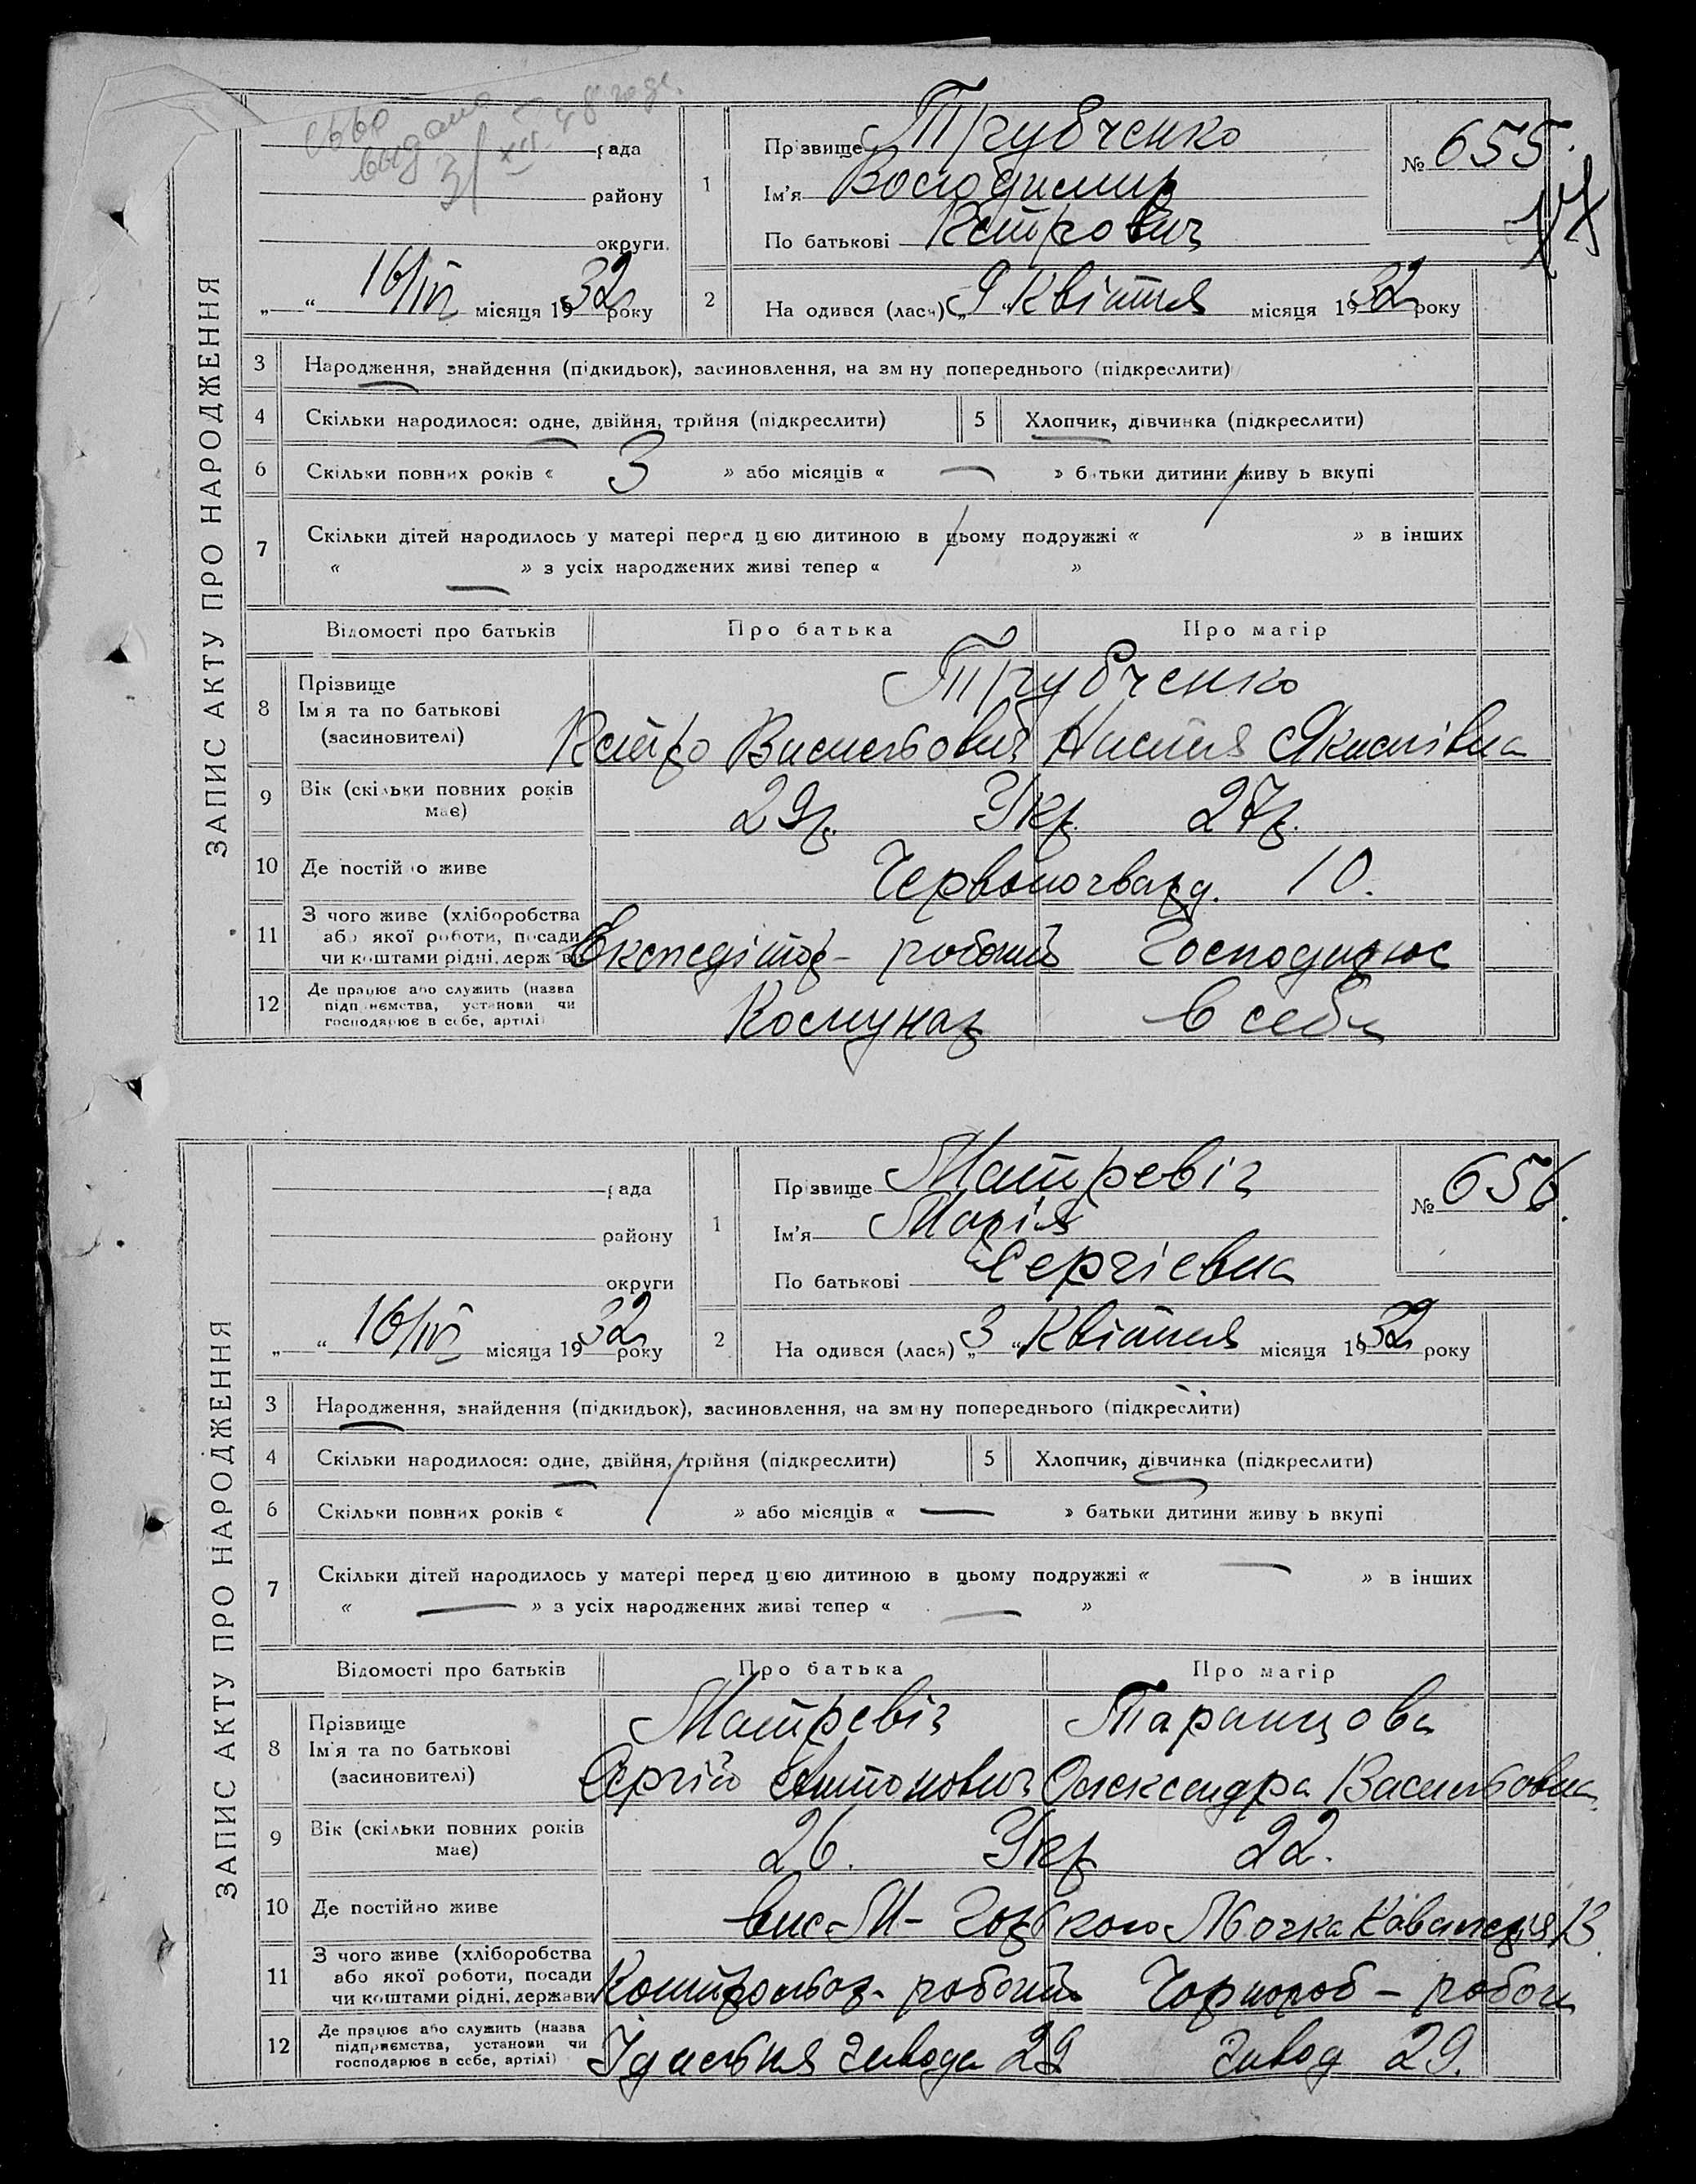 ЗАПИС АКТУ ПРО НАРОДЖЕННЯ
видано
31/XII 48 года.
рада
району
округи
16/IV місяця 1932 року
1 Прізвище Трубченко
Ім'я Володимир
По батькові Петрович
№ 655.
2 На одився (лася) „9“ Квітня місяця 1932 року
3 Народження, знайдення (підкидьок), засиновлення, на зм ну попереднього (підкреслити)
4 Скільки народилося: одне, двійня, трійня (підкреслити) 5 Хлопчик, дівчинка (підкреслити)
6 Скільки повних років « 3 » або місяців « — » б тьки дитини живу ь вкупі
7 Скільки дітей народилось у матері перед цією дитиною в цьому подружжі « » в інших
« — » з усіх народжених живі тепер « »
Відомості про батьків Про батька Про матір
8 Прізвище Ім'я та по батькові (засиновителі) Трубченко
Петро Васильович Настя Якимівна
9 Вік (скільки повних років має) 29р. Укр. 27р.
10 Де постій о живе Червоногвард. 10.
11 З чого живе (хліборобства або якої роботи, посади чи коштами рідні, держави Експедітор - робочий Господарює
12 Де працює або служить (назва підприємства, установи чи господарює в себе, артілі) Комунар в себе
ЗАПИС АКТУ ПРО НАРОДЖЕННЯ
рада
району
округи
16/IV місяця 1932 року
1 Прізвище Матревіч
Ім'я Марія
По батькові Сергіевна
№ 656.
2 На одився (лася) „3“ Квітня місяця 1932 року
3 Народження, знайдення (підкидьок), засиновлення, на зміну попереднього (підкреслити)
4 Скільки народилося: одне, двійня, трійня (підкреслити) 5 Хлопчик, дівчинка (підкреслити)
6 Скільки повних років « 1 » або місяців « — » батьки дитини живу ь вкупі
7 Скільки дітей народилось у матері перед цією дитиною в цьому подружжі « — » в інших
« — » з усіх народжених живі тепер « — »
Відомості про батьків Про батька Про матір
8 Прізвище Ім'я та по батькові (засиновителі) Матревіч Таранцова
Сергій Антонович Олександра Васильовна
9 Вік (скільки повних років має) 26. Укр 22.
10 Де постійно живе вис М-Горького
11 З чого живе (хліборобства або якої роботи, посади чи коштами рідні, держави Контрольор - робочий Чорнороб - робоч
12 Де працює або служить (назва підприємства, установи чи господарює в себе, артілі) Їдальня завода 29 завод 29.